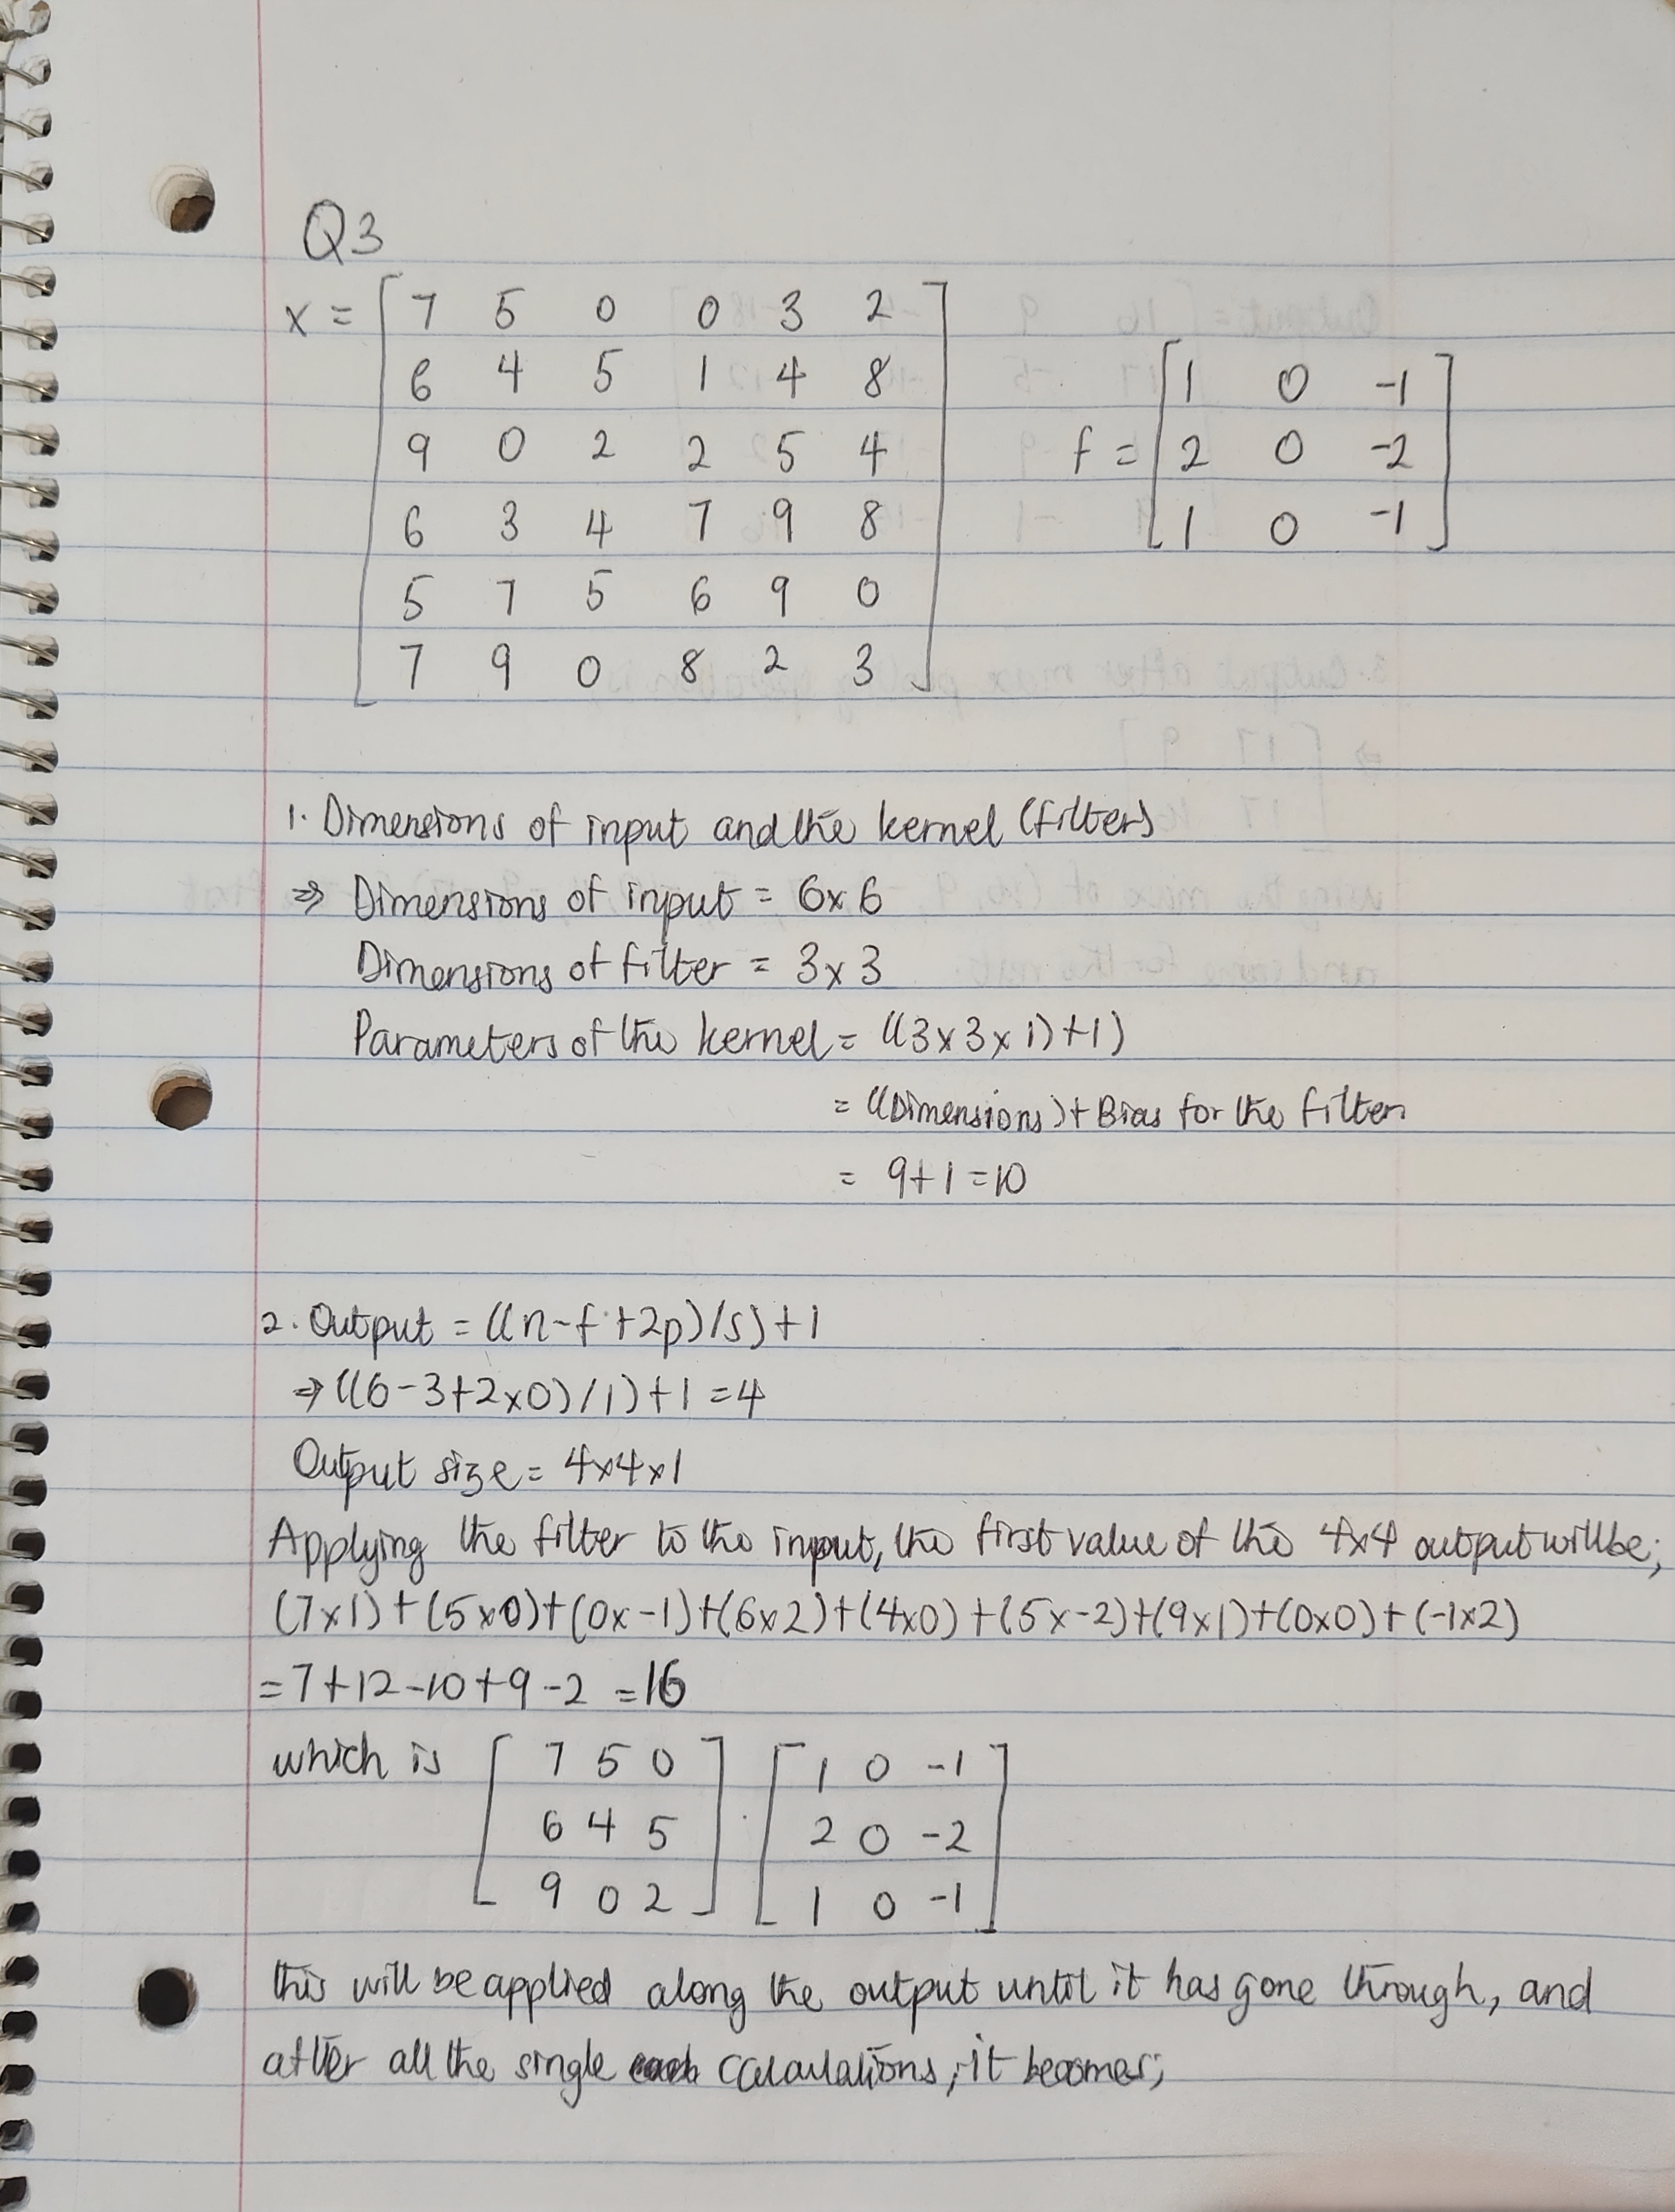 Q3
x = [ 7 5 0 0 3 2 ]
6 4 5 1 4 8
9 0 2 2 5 4
6 3 4 7 9 8
5 7 5 6 9 0
7 9 0 8 2 3
f = [ 1 0 -1 ]
2 0 -2
1 0 -1
1. Dimensions of input and the kernel (filters)
⇒ Dimensions of input = 6x6
Dimensions of filter = 3x3
Parameters of the kernel = ((3x3x1)+1)
= ((Dimensions)+Bias for the filter
= 9+1=10
2. Output = ((n-f+2p)/s)+1
⇒ ((6-3+2x0)/1)+1=4
Output size = 4x4x1
Applying the filter to the input, the first value of the 4x4 output will be;
(7x1)+(5x0)+(0x-1)+(6x2)+(4x0)+(5x-2)+(9x1)+(0x0)+(-1x2)
=7+12-10+9-2 =16
which is [ 7 5 0 ] . [ 1 0 -1 ]
6 4 5 2 0 -2
9 0 2 1 0 -1
this will be applied along the output until it has gone through, and
after all the single calculations, it becomes;